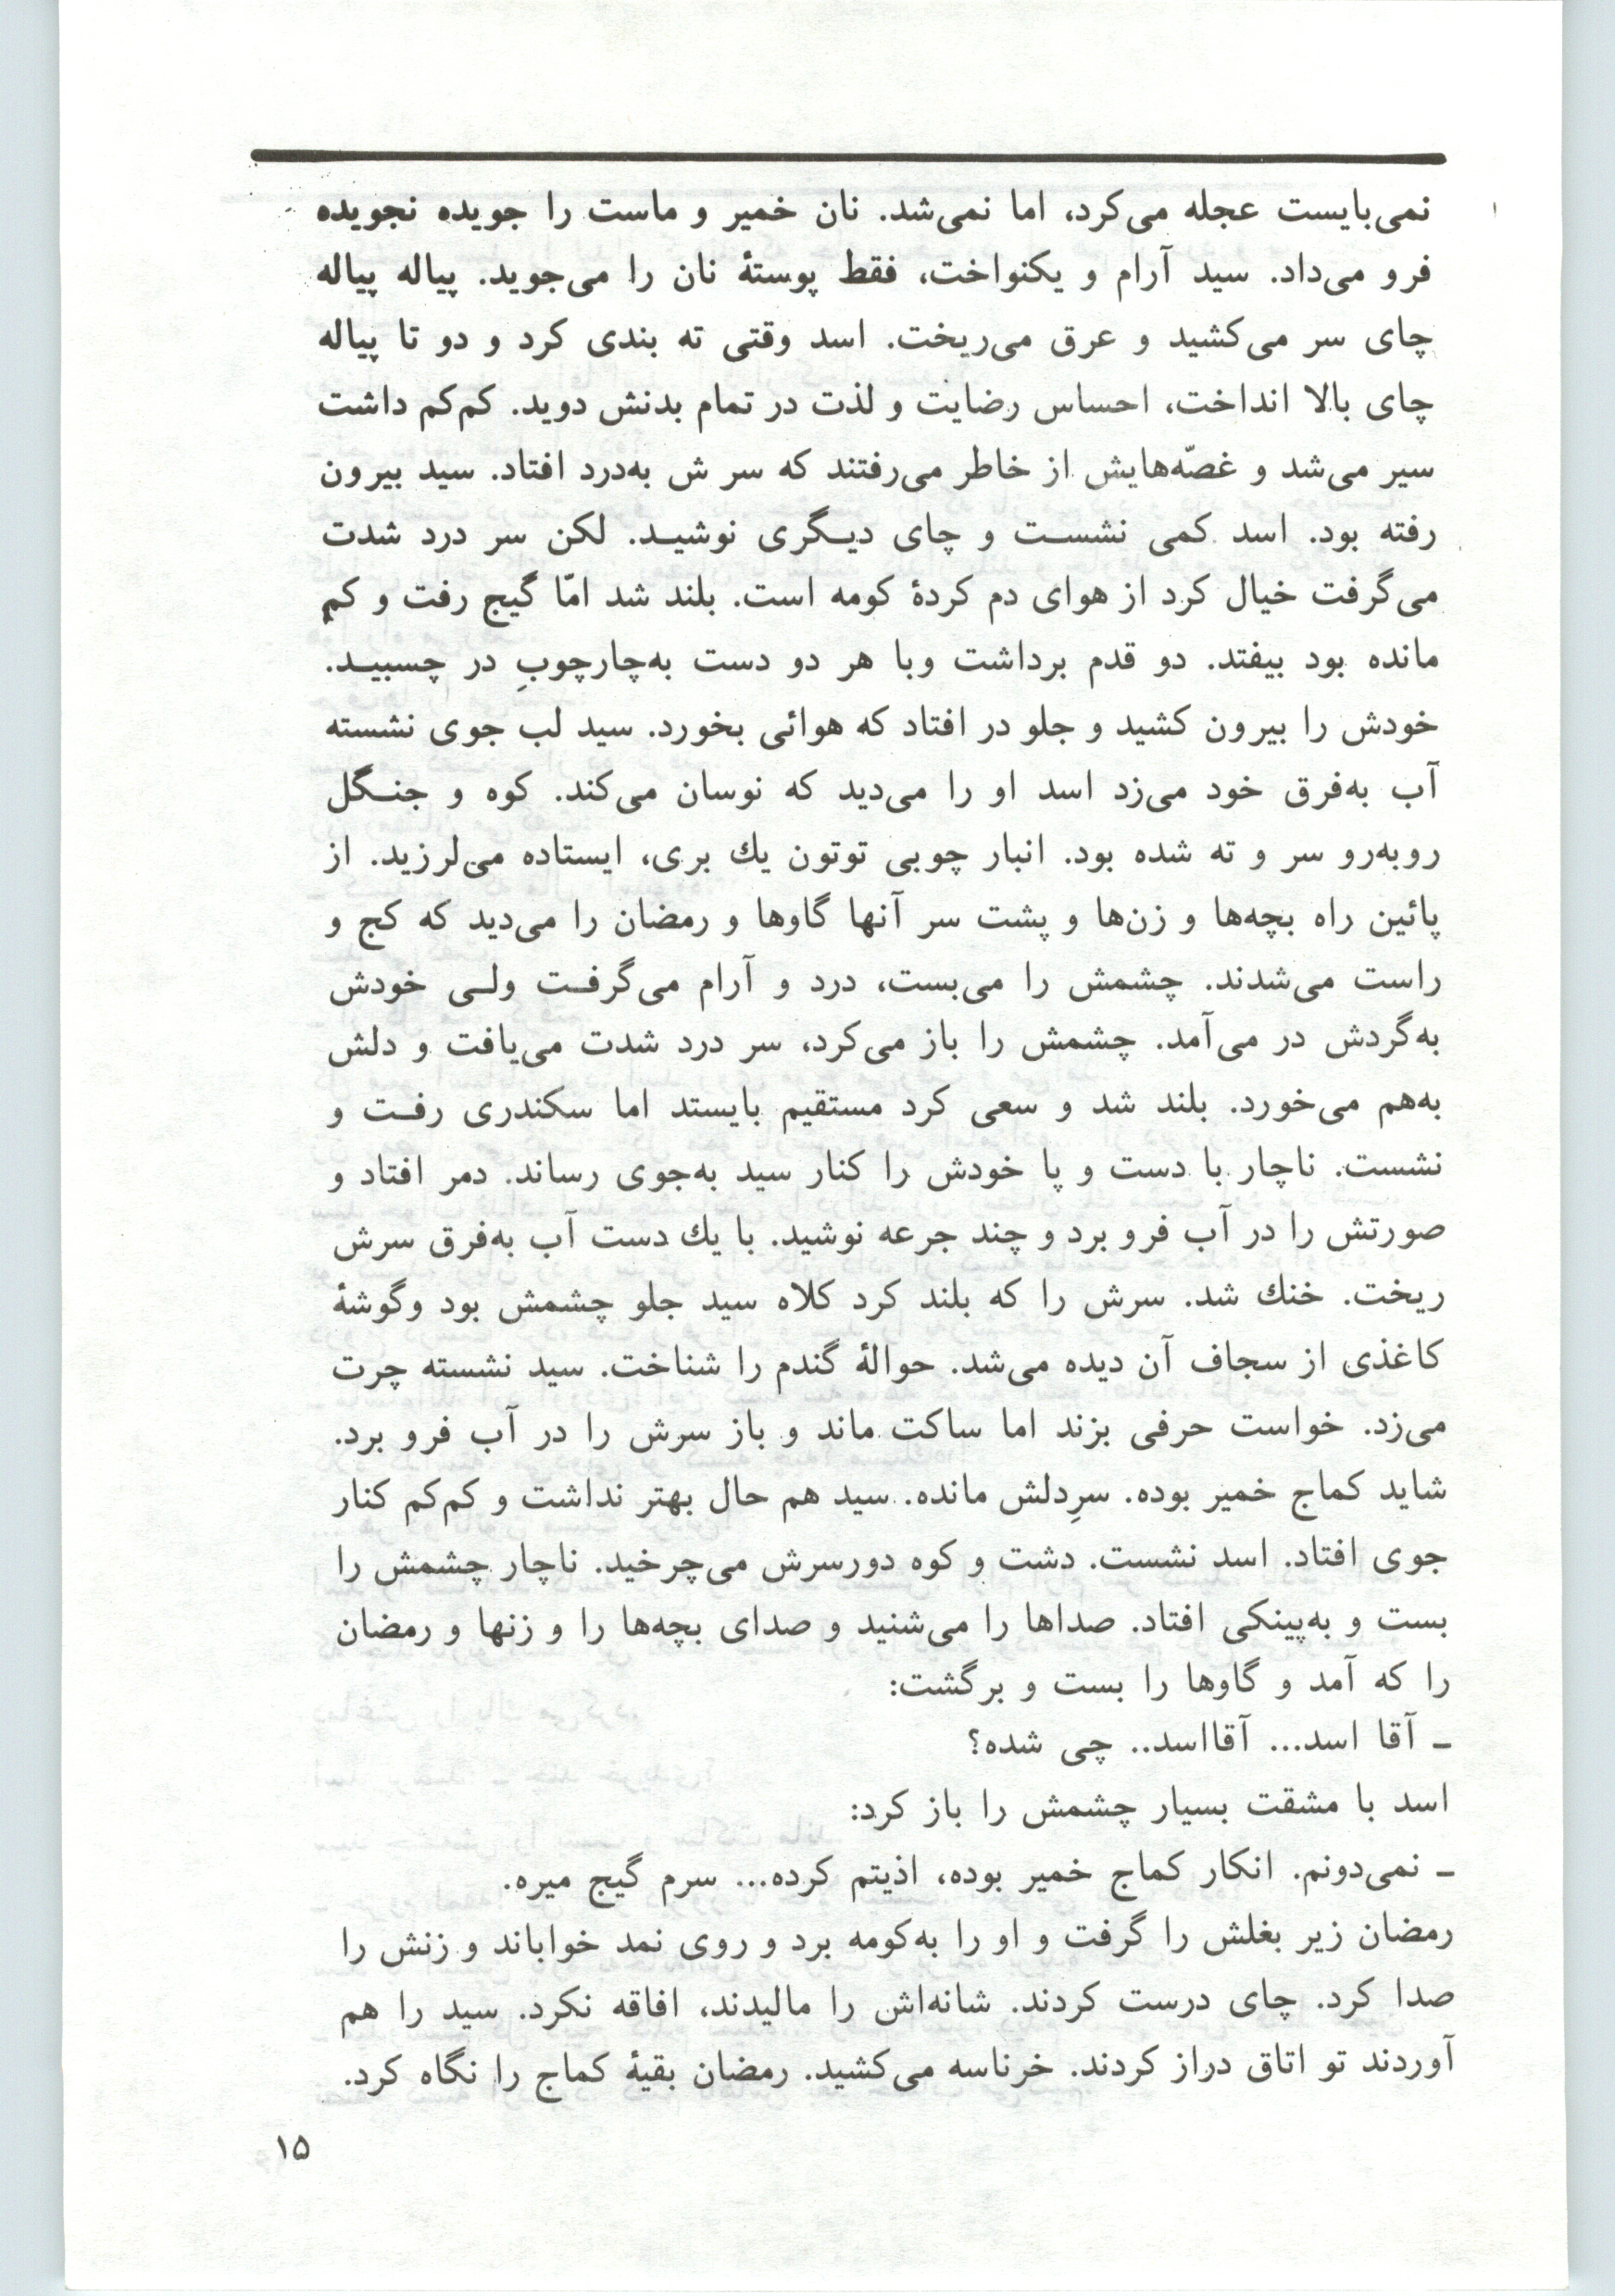 نمی‌بایست عجله می‌کرد، اما نمی‌شد. نان خمیر و ماست را جویده نجویده
فرو می‌داد. سید آرام و یکنواخت، فقط پوستۀ نان را می‌جوید. پیاله پیاله
چای سر می‌کشید و عرق می‌ریخت. اسد وقتی ته بندی کرد و دو تا پیاله
چای بالا انداخت، احساس رضایت و لذت در تمام بدنش دوید. کم‌کم داشت
سیر می‌شد و غصّه‌هایش از خاطر می‌رفتند که سر ش به‌درد افتاد. سید بیرون
رفته بود. اسد کمی نشســت و چای دیــگری نوشیــد. لکن سر درد شدت
می‌گرفت خیال کرد از هوای دم کردۀ کومه است. بلند شد امّا گیج رفت و کم
مانده بود بیفتد. دو قدم برداشت وبا هر دو دست به‌چارچوبِ در چسبیــد.
خودش را بیرون کشید و جلو در افتاد که هوائی بخورد. سید لب جوی نشسته
آب به‌فرق خود می‌زد اسد او را می‌دید که نوسان می‌کند. کوه و جنــگل
روبه‌رو سر و ته شده بود. انبار چوبی توتون یك بری، ایستاده می‌لرزید. از
پائین راه بچه‌ها و زن‌ها و پشت سر آنها گاوها و رمضان را می‌دید که کج و
راست می‌شدند. چشمش را می‌بست، درد و آرام می‌گرفــت ولــی خودش
به‌گردش در می‌آمد. چشمش را باز می‌کرد، سر درد شدت می‌یافت و دلش
به‌هم می‌خورد. بلند شد و سعی کرد مستقیم بایستد اما سکندری رفــت و
نشست. ناچار با دست و پا خودش را کنار سید به‌جوی رساند. دمر افتاد و
صورتش را در آب فرو برد و چند جرعه نوشید. با یك دست آب به‌فرق سرش
ریخت. خنك شد. سرش را که بلند کرد کلاه سید جلو چشمش بود وگوشۀ
کاغذی از سجاف آن دیده می‌شد. حوالۀ گندم را شناخت. سید نشسته چرت
می‌زد. خواست حرفی بزند اما ساکت ماند و باز سرش را در آب فرو برد.
شاید کماج خمیر بوده. سرِدلش مانده. سید هم حال بهتر نداشت و کم‌کم کنار
جوی افتاد. اسد نشست. دشت و کوه دورسرش می‌چرخید. ناچار چشمش را
بست و به‌پینکی افتاد. صداها را می‌شنید و صدای بچه‌ها را و زنها و رمضان
را که آمد و گاوها را بست و برگشت:
ـ آقا اسد... آقااسد.. چی شده؟
اسد با مشقت بسیار چشمش را باز کرد:
ـ نمی‌دونم. انکار کماج خمیر بوده، اذیتم کرده... سرم گیج میره.
رمضان زیر بغلش را گرفت و او را به‌کومه برد و روی نمد خواباند و زنش را
صدا کرد. چای درست کردند. شانه‌اش را مالیدند، افاقه نکرد. سید را هم
آوردند تو اتاق دراز کردند. خرناسه می‌کشید. رمضان بقیۀ کماج را نگاه کرد.
۱۵